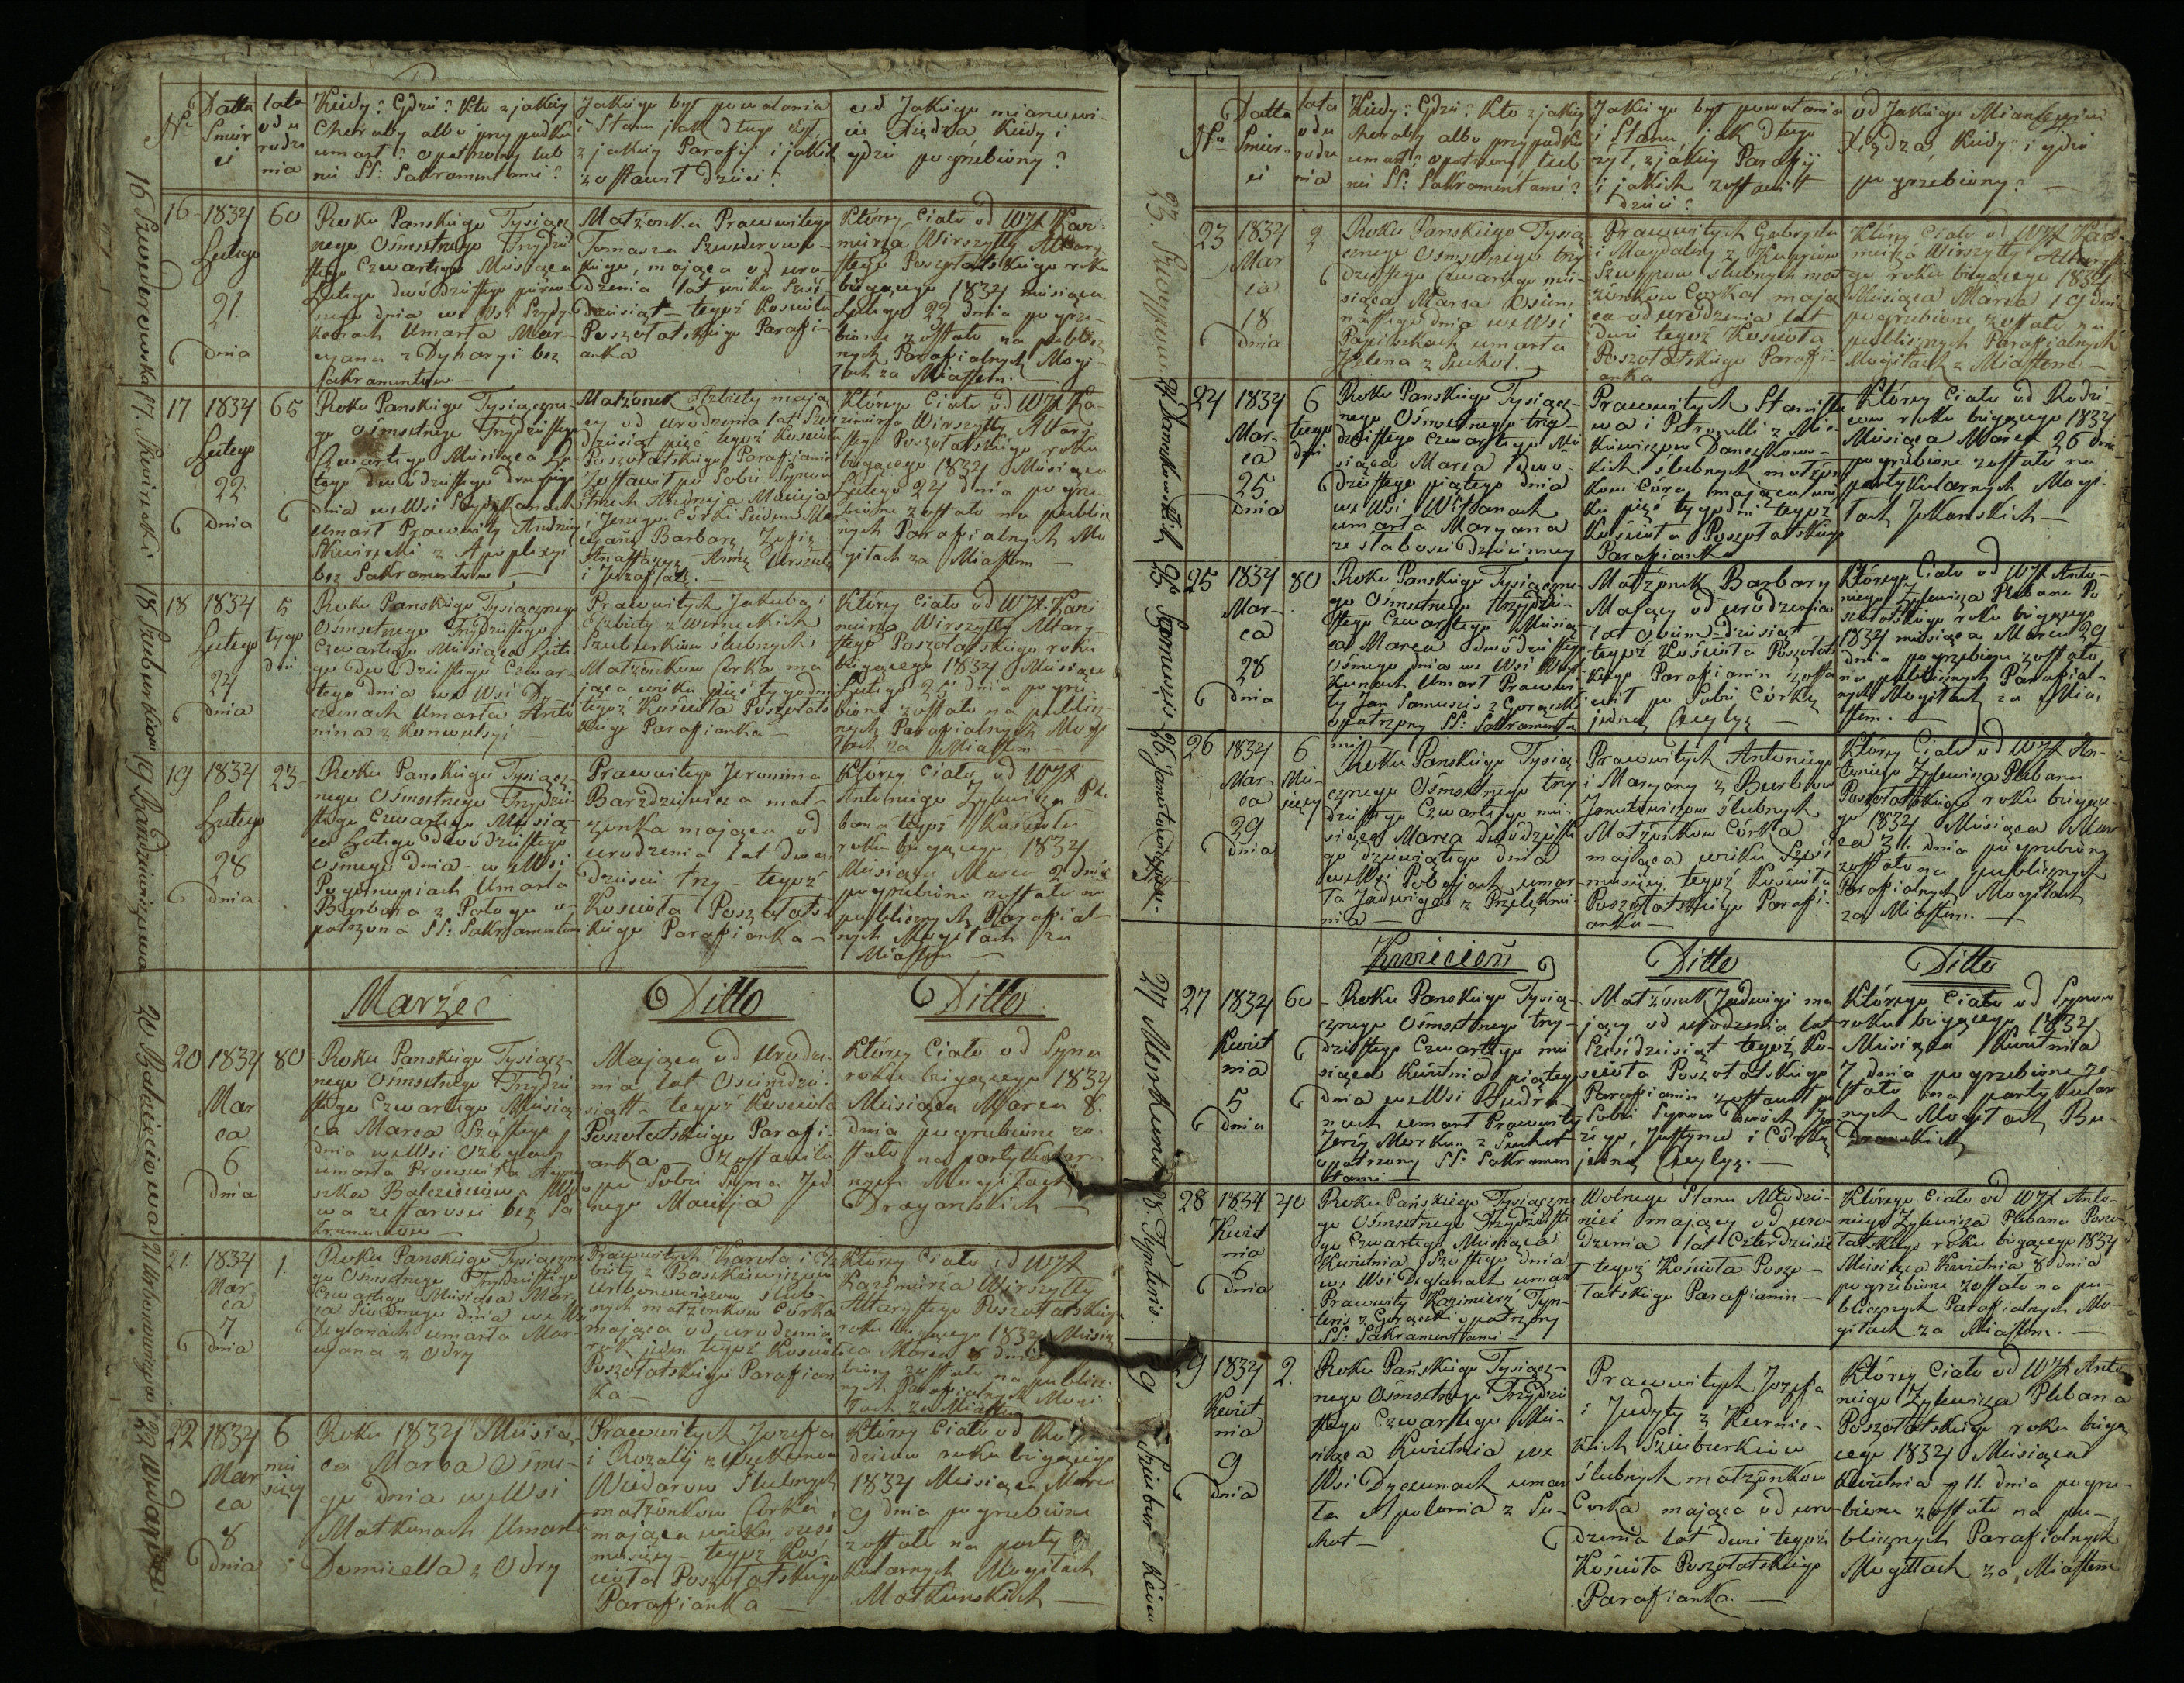 Nr
Datta Śmierci
lata od urodzenia
Kiedy? Gdzie? Kto z jakiej
Choroby albo przypadku
umarł? opatrzony lub
nie SS: Sakramentami?
Jakiego był powołania
i Stanu jak długo żył,
z jakiej Parafii i jakich
zostawił dzieci?
od Jakiego mianowi-
cie Xiędza Kiedy i
gdzie pogrzebiony?
16 1834 Lutego 21 dnia 60
Roku Panskiego Tysiącz-
nego Ośmsetnego Trzydzie
stego Czwartego Miesiąca
Lutego dwódziestego pierw-
szego dnia we Wsi
umarła Mar-
cyana z Dyharyi bez
Sakramentow —
Małżonka Prawowitego
Tomasza Szwederows-
kiego, mająca od uro-
dzenia lat wieku Sześć
dziesiąt — tegoż Kościoła
Poszołatskiego Parafi-
anka
Którey Ciało od WJX Kazi-
mierza Wirszyłły Altary-
stego Poszołatskiego roku
biegącego 1834 miesiąca
Lutego 22 dnia pogrze-
bione zostało na publicz
nych Parafialnych Mogi-
łach za Miastem.
17 1834 Lutego 22 dnia 65
Roku Panskiego Tysiączne-
go Ośmsetnego Trzydziestego
Czwartego Miesiąca Lu-
tego dwódziestego drugiego
dnia we Wsi
umarł Prawowity Andrzey
z Apoplexyi
bez Sakramentow —
Małżonek Elżbiety mają-
cy od urodzenia lat Sześć
dziesiąt pięć tegoż Kościoła
Poszołatskiego Parafianin
Zostawił po Sobie Synow
trzech Andrzeja Macieja
i Jerzego Córki Siedem Mar
cyanę Barbarę Zofię
Anastazyą Annę Urszulę
i Jozafatę. —
Którego Ciało od WJX Ka-
zimierza Wirszyłły Altary
stego Poszołatskiego roku
biegącego 1834 Miesiąca
Lutego 24 dnia pogrze-
bione zostało na publicz
nych Parafialnych Mo
giłach za Miastem —
18 1834 Lutego 24 dnia 5 tygo dni
Roku Panskiego Tysiącznego
Ośmsetnego Trzydziestego
Czwartego Miesiąca Lute
go dwódziestego Czwar-
tego dnia we Wsi Dy-
czunach umarła Anto
nina z Konwulsyi
Prawowitych Jakuba i
Elżbiety z Wernickich
Szuburkiow ślubnych
Małżonkow Corka ma
jąca wieku pięć tygodni
tegoż Kościoła Poszołats
kiego Parafianka —
Którey Ciało od WJX. Kazi
mierza Wirszyłły Altary-
stego Poszołatskiego roku
biegącego 1834 Miesiąca
Lutego 25 dnia pogrze-
bione zostało na publicz-
nych Parafialnych Mogi
łach za Miastem. —
19 1834 Lutego 28 dnia 23
Roku Panskiego Tysiącz-
nego Ośmsetnego Trzydzie
stego Czwartego Miesią-
ca Lutego Dwódziestego
Osmego dnia w Wsi
umarła
Barbara z Połogu o-
patrzona SS: Sakramentami
Prawowitego Jeronima
Bardziewicza mał-
żonka mająca od
urodzenia lat dwa
dzieści trzy — tegoż
Kościoła Poszołats-
kiego Parafianka —
Którey Ciało od WJX
Antoniego Zylewicza Ple
bana tegoż Kościoła
roku biegącego 1834
Miesiąca Marca 2 dnia
pogrzebione zostało na
publicznych Parafial-
nych Mogiłach za
Miastem —
Marzec
Ditto
Ditto
20 1834 Marca 6 dnia 80
Roku Panskiego Tysiącz-
nego Ośmsetnego Trzydzie
stego Czwartego Miesią-
ca Marca Szóstego
dnia we Wsi
umarła Prawowita Agnie
szka Balceviczowa Wdo
wa ze starości bez Sa
kramentow —
Mająca od Urodze-
nia lat Ośmdzie-
siątt — tegoż Kościoła
Poszołatskiego Parafi-
anka — Zostawiła
po Sobie Syna Jed-
nego Macieja —
Którey Ciało od Syna
roku biegącego 1834
Miesiąca Marca 8.
dnia pogrzebione zo-
stało na partykular-
nych Mogiłach
Draganskich —
21 1834 Marca 7 dnia 1
Roku Panskiego Tysiączne
go Ośmsetnego Trzydziestego
Czwartego Miesiąca Mar-
ca Siódmego dnia we Wsi
Deglanach umarła Mar-
cyana z Odry
Prawowitych Karola i Elż
biety z
Urbonowiczow ślub-
nych małżonkow Córka
mająca od urodzenia
rok jeden tegoż Kościoła
Poszołatskiego Parafian
ka —
Którey Ciało od WJX
Kazimierza Wirszyłły
Altarystego Poszołatskiego
roku biegącego 1834 Miesią
ca Marca 8 dnia
bione zostało na publicz-
nych Parafialnych Mogi-
łach za Miastem
22 1834 Marca 8 dnia 6 mie sięcy
Roku 1834 Miesią-
ca Marca Ośme-
go dnia we Wsi
Matkunach Umarła
Domicella z Odry
Prawowitych Jozefa
i Rozalij
ślubnych
małżonkow Corka
mająca wieku sześć
miesięcy — tegoż Koś-
cioła Poszołatskiego
Parafianka —
Którey Ciało od Ro-
dzicow roku biegącego
1834 Miesiąca Marca
9 dnia pogrzebione
zostało na party
kularnych Mogiłach
Matkunskich —
16 Szwederowska
17.
18 Szuburkiow
19 Bardziewiczowa
20 Balceviczowa
21 Urbonowiczow
22
Nr
Datta Śmierci
lata od urodzenia
Kiedy? Gdzie? Kto z jakiej
choroby albo przypadku
umarł? opatrzony lub
nie SS: Sakramentami?
Jakiego był powołania
i Stanu jak długo
żył, z jakiej Parafij
i jakich zostawił
dzieci?
od Jakiego Mianowicie
Xiędza, Kiedy i gdzie
pogrzebiony? —
23 1834 Marca 18 dnia 2
Roku Panskiego Tysią
cznego Ośmsetnego trzy
dziestego Czwartego mie-
siąca Marca Osiem
nastego dnia we Wsi
Papiszkach umarła
Helena z Suchot. —
Prawowitych Gabryela
i Magdaleny z
ślubnych mał
żonkow Corka mają
ca od urodzenia lat
dwie tegoż Kościoła
Poszołatskiego Parafi-
anka
Którey Ciało od WJX Kazi-
mierza Wirszyłły Altarysto
go roku biegącego 1834
Miesiąca Marca 19 dnia
pogrzebione zostało na
publicznych Parafialnych
Mogiłach z Miastem —
24 1834 Marca 25 dnia 6 tygo dni
Roku Panskiego Tysiącz-
nego Ośmsetnego trzy-
dziestego Czwartego Mie
siąca Marca Dwó-
dziestego piątego dnia
we Wsi Witianach
umarła Maryana
ze słabości Dziecinney
Prawowitych Stanisła
wa i Petronelli z Mic-
kiewiczow
kich ślubnych małżon
kow Córa mająca wie
ku pięć tygodni tegoż
Kościoła Poszołatskiego
Parafianka
Którey Ciało od Rodzi-
cow roku biegącego 1834
Miesiąca Marca 26 dnia
pogrzebione zostało na
partykularnych Mogi-
łach Jukanskich —
25 1834 Marca 28 dnia 80
Roku Panskiego Tysiączne-
go Ośmsetnego trzydzie-
stego Czwartego Miesią-
ca Marca dwódziestego
Osmego dnia we Wsi
umarł Prawowi-
ty Jan Samuszis z Gorączki
opatrzony SS: Sakramenta
mi
Małżonek Barbary
Mający od urodzenia
lat Osiem-dziesiąt
tegoż Kościoła Poszołats
kiego Parafianin zosta
wił po Sobie Córkę
jedną Cecylyę —
Którego Ciało od WJX Anto-
niego Zylewicza Plebana Po
szołatskiego roku biegącego
1834 miesiąca Marca 29
dnia pogrzebione zostało
na publicznych Parafial-
nych Mogiłach za Mia-
stem. —
26 1834 Marca 29 dnia 6 Mie sięcy
Roku Panskiego Tysią-
cznego Ośmsetnego trzy
dziestego Czwartego mie-
siąca Marca dwódzieste
go dziewiątego dnia
we Wsi Pobojach umar-
ła Jadwiga z Przelęknie
nia —
Prawowitych Antoniego
i Maryany z
ślubnych
Małżonkow Córka
mająca wieku Sześć
miesięcy tegoż Kościoła
Poszołatskiego Parafi-
anka —
Którey Ciało od WJX An-
toniego Zylewicza Plebana
Poszołatskiego roku biegące-
go 1834 Miesiąca Mar
ca 31. dnia pogrzebione
zostało na publicznych
Parafialnych Mogiłach
za Miastem. —
Kwiecień
Ditto
Ditto
27 1834 Kwietnia 5 dnia 60
Roku Panskiego Tysią-
cznego Ośmsetnego trzy-
dziestego Czwartego mie
siąca Kwietnia piątego
dnia we Wsi Budra-
nach umarł Prawowity
Jerzy Morkun z Suchot
opatrzony SS: Sakramen
tami —
Małżonek Jadwigi ma
jący od urodzenia lat
Sześćdziesiąt tegoż Ko-
ścioła Poszołatskiego
Parafianin zostawił po
Sobie Synow dwóch Je-
rzego, Justyna i Córkę
jedną Cecylyę. —
Którego Ciało od Synow
roku biegącego 1834
Miesiąca Kwietnia
7 dnia pogrzebione zo-
stało na partykular
nych Mogiłach Bu
dranskich
28 1834 Kwietnia 6 dnia 40
Roku Pańskiego Tysiączne
go Ośmsetnego Trzydzieste
go Czwartego Miesiąca
Kwietnia Szóstego dnia
we Wsi Deglanach umarł
Prawowity Kazimierz Tyn-
teris z Gorączki opatrzony
SS: Sakramentami
Wolnego Stanu Młodzie-
niec mający od uro-
dzenia lat Czterdzieści
tegoż Kościoła Poszo-
łatskiego Parafianin —
Którego Ciało od WJX Anto-
niego Zylewicza Plebana Poszo-
łatskiego roku biegącego 1834
Miesiąca Kwietnia 8 dnia
pogrzebione zostało na pu-
blicznych Parafialnych Mo-
giłach za Miastem. —
29 1834 Kwietnia 9 dnia 2.
Roku Pańskiego Tysiącz-
nego Ośmsetnego Trzydzie
stego Czwartego Mie-
siąca Kwietnia we
Wsi Dyczunach umar
ła Apolonia z Su-
chot —
Prawowitych Jozefa
i Judyty z Kurnic-
kich Szuburkiow
ślubnych małżonkow
Corka mająca od uro-
dzenia lat dwie tegoż
Kościoła Poszołatskiego
Parafianka. —
Którey Ciało od WJX Anto-
niego Zylewicza Plebana
Poszołatskiego roku biegą
cego 1834 Miesiąca
Kwietnia 11. dnia pogrze-
bione zostało na pu-
blicznych Parafialnych
Mogiłach za Miastem
23.
24
25 Samuszis
26
27 Morkuno
28. Tynteris.
29